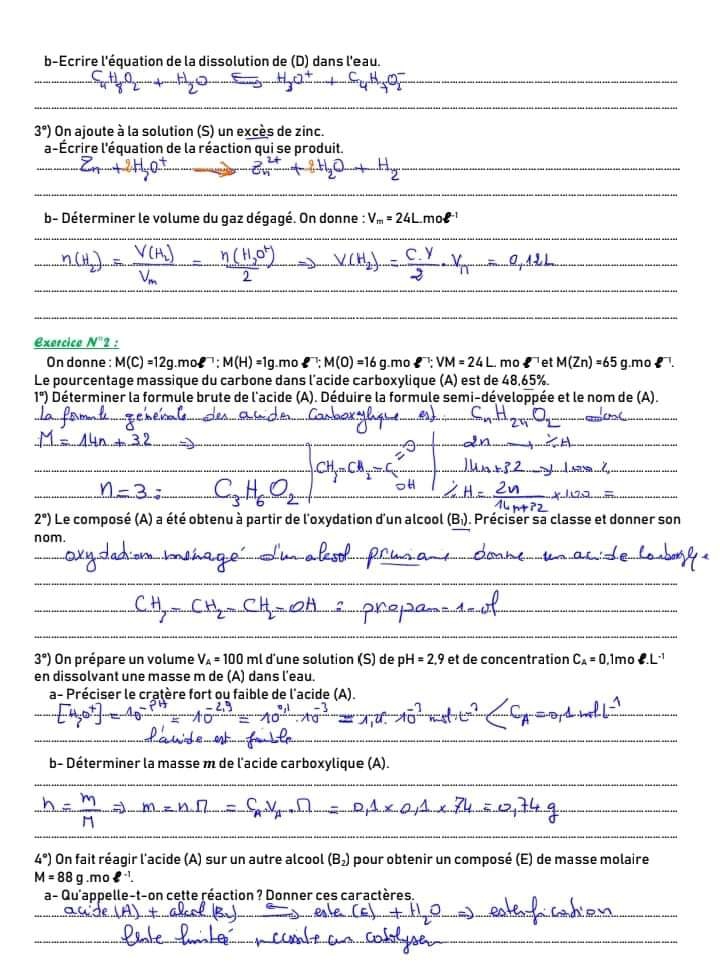 b-Ecrire l'équation de la dissolution de (D) dans l'eau.
C₄H₈O₂ + H₂O ⇌ H₃O⁺ + C₄H₇O₂⁻
3°) On ajoute à la solution (S) un excès de zinc.
a-Écrire l'équation de la réaction qui se produit.
Zn + 2H₃O⁺ → Zn²⁺ + 2H₂O + H₂
b- Déterminer le volume du gaz dégagé. On donne : Vₘ = 24L.moℓ⁻¹
n(H₂) = V(H₂)/Vm = n(H₃O⁺)/2 => V(H₂) = C.V/2 . Vn = 0,12L
Exercice N°2 :
On donne : M(C) =12g.moℓ⁻¹ ; M(H) =1g.mo ℓ⁻¹; M(O) =16 g.moℓ⁻¹; VM = 24 L. mo ℓ⁻¹ et M(Zn) =65 g.mo ℓ⁻¹.
Le pourcentage massique du carbone dans l'acide carboxylique (A) est de 48,65%.
1°) Déterminer la formule brute de l'acide (A). Déduire la formule semi-développée et le nom de (A).
la formule générale des acides Carboxylique est CnH2nO₂ donc
M = 14n + 32 => 2n → %H
CH₃-CH₂-C =O OH 14n+32 → 100%
n = 3 : C₃H₆O₂ %H = 2n/14n+32 × 100 =
2°) Le composé (A) a été obtenu à partir de l'oxydation d'un alcool (B₁). Préciser sa classe et donner son
nom.
oxydation ménagé d'un alcool primaire donne un acide Carboxyl
CH₃ - CH₂ - CH₂ - OH : propan-1-ol
3°) On prépare un volume Vᴀ = 100 ml d'une solution (S) de pH = 2,9 et de concentration Cᴀ = 0,1mo ℓ.L⁻¹
en dissolvant une masse m de (A) dans l'eau.
a- Préciser le cratère fort ou faible de l'acide (A).
[H₃O⁺] = 10⁻ᵖᴴ = 10⁻²,⁹ = 10⁰,¹.10⁻³ = 1,2.10⁻³ mol.L⁻¹ < Cᴀ = 0,1 mol.L⁻¹
l'acide est faible
b- Déterminer la masse m de l'acide carboxylique (A).
n = m/M => m = n.M = Cᴀ.Vᴀ.M = 0,1 × 0,1 × 74 = 0,74 g
4°) On fait réagir l'acide (A) sur un autre alcool (B₂) pour obtenir un composé (E) de masse molaire
M = 88 g .mo ℓ⁻¹.
a- Qu'appelle-t-on cette réaction ? Donner ces caractères.
acide (A) + alcol (B₂) ⇌ ester (E) + H₂O => esterification
lente limitée